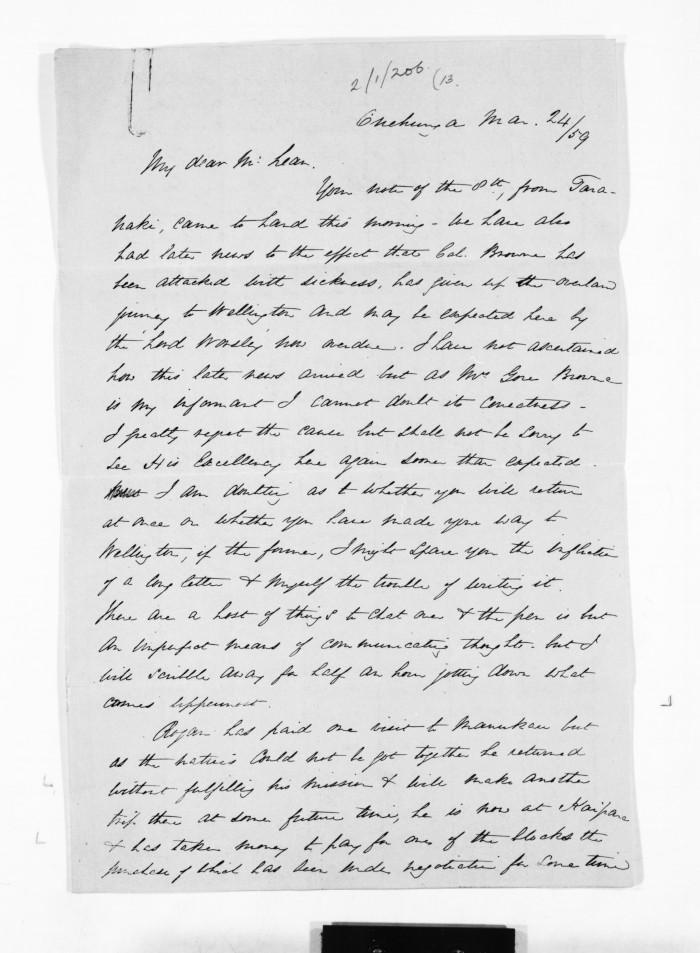 2/1/206 (13.
Onehunga Mar. 24/59
My dear McLean.
Your note of the 8th, from Tara-
naki, came to hand this morning - We have also
had later news to the effect that Col. Browne has
been attacked with sickness, has given up the overland
journey to Wellington and may be expected here by
the 'Lord Worsley' now overdue. I have not ascertained
how this later news arrived but as Mrs Gore Browne
is my informant I cannot doubt its correctness -
I greatly regret the cause but shall not be sorry to
see His Excellency here again sooner than expected.
I am doubting as to whether you will return
at once or whether you have made your way to
Wellington, if the former, I might spare you the infliction
of a long letter & myself the trouble of writing it.
There are a host of things to chat over & the pen is but
an imperfect means of communicating thought. but I
will scribble away for half an hour jotting down what
comes uppermost.
Rogan has paid one visit to Manukau but
as the natives could not be got together he returned
without fulfilling his mission & will make another
trip there at some future time, he is now at Kaipara
& has taken money to pay for one of the blocks the
purchase of which has been under negotiation for some time